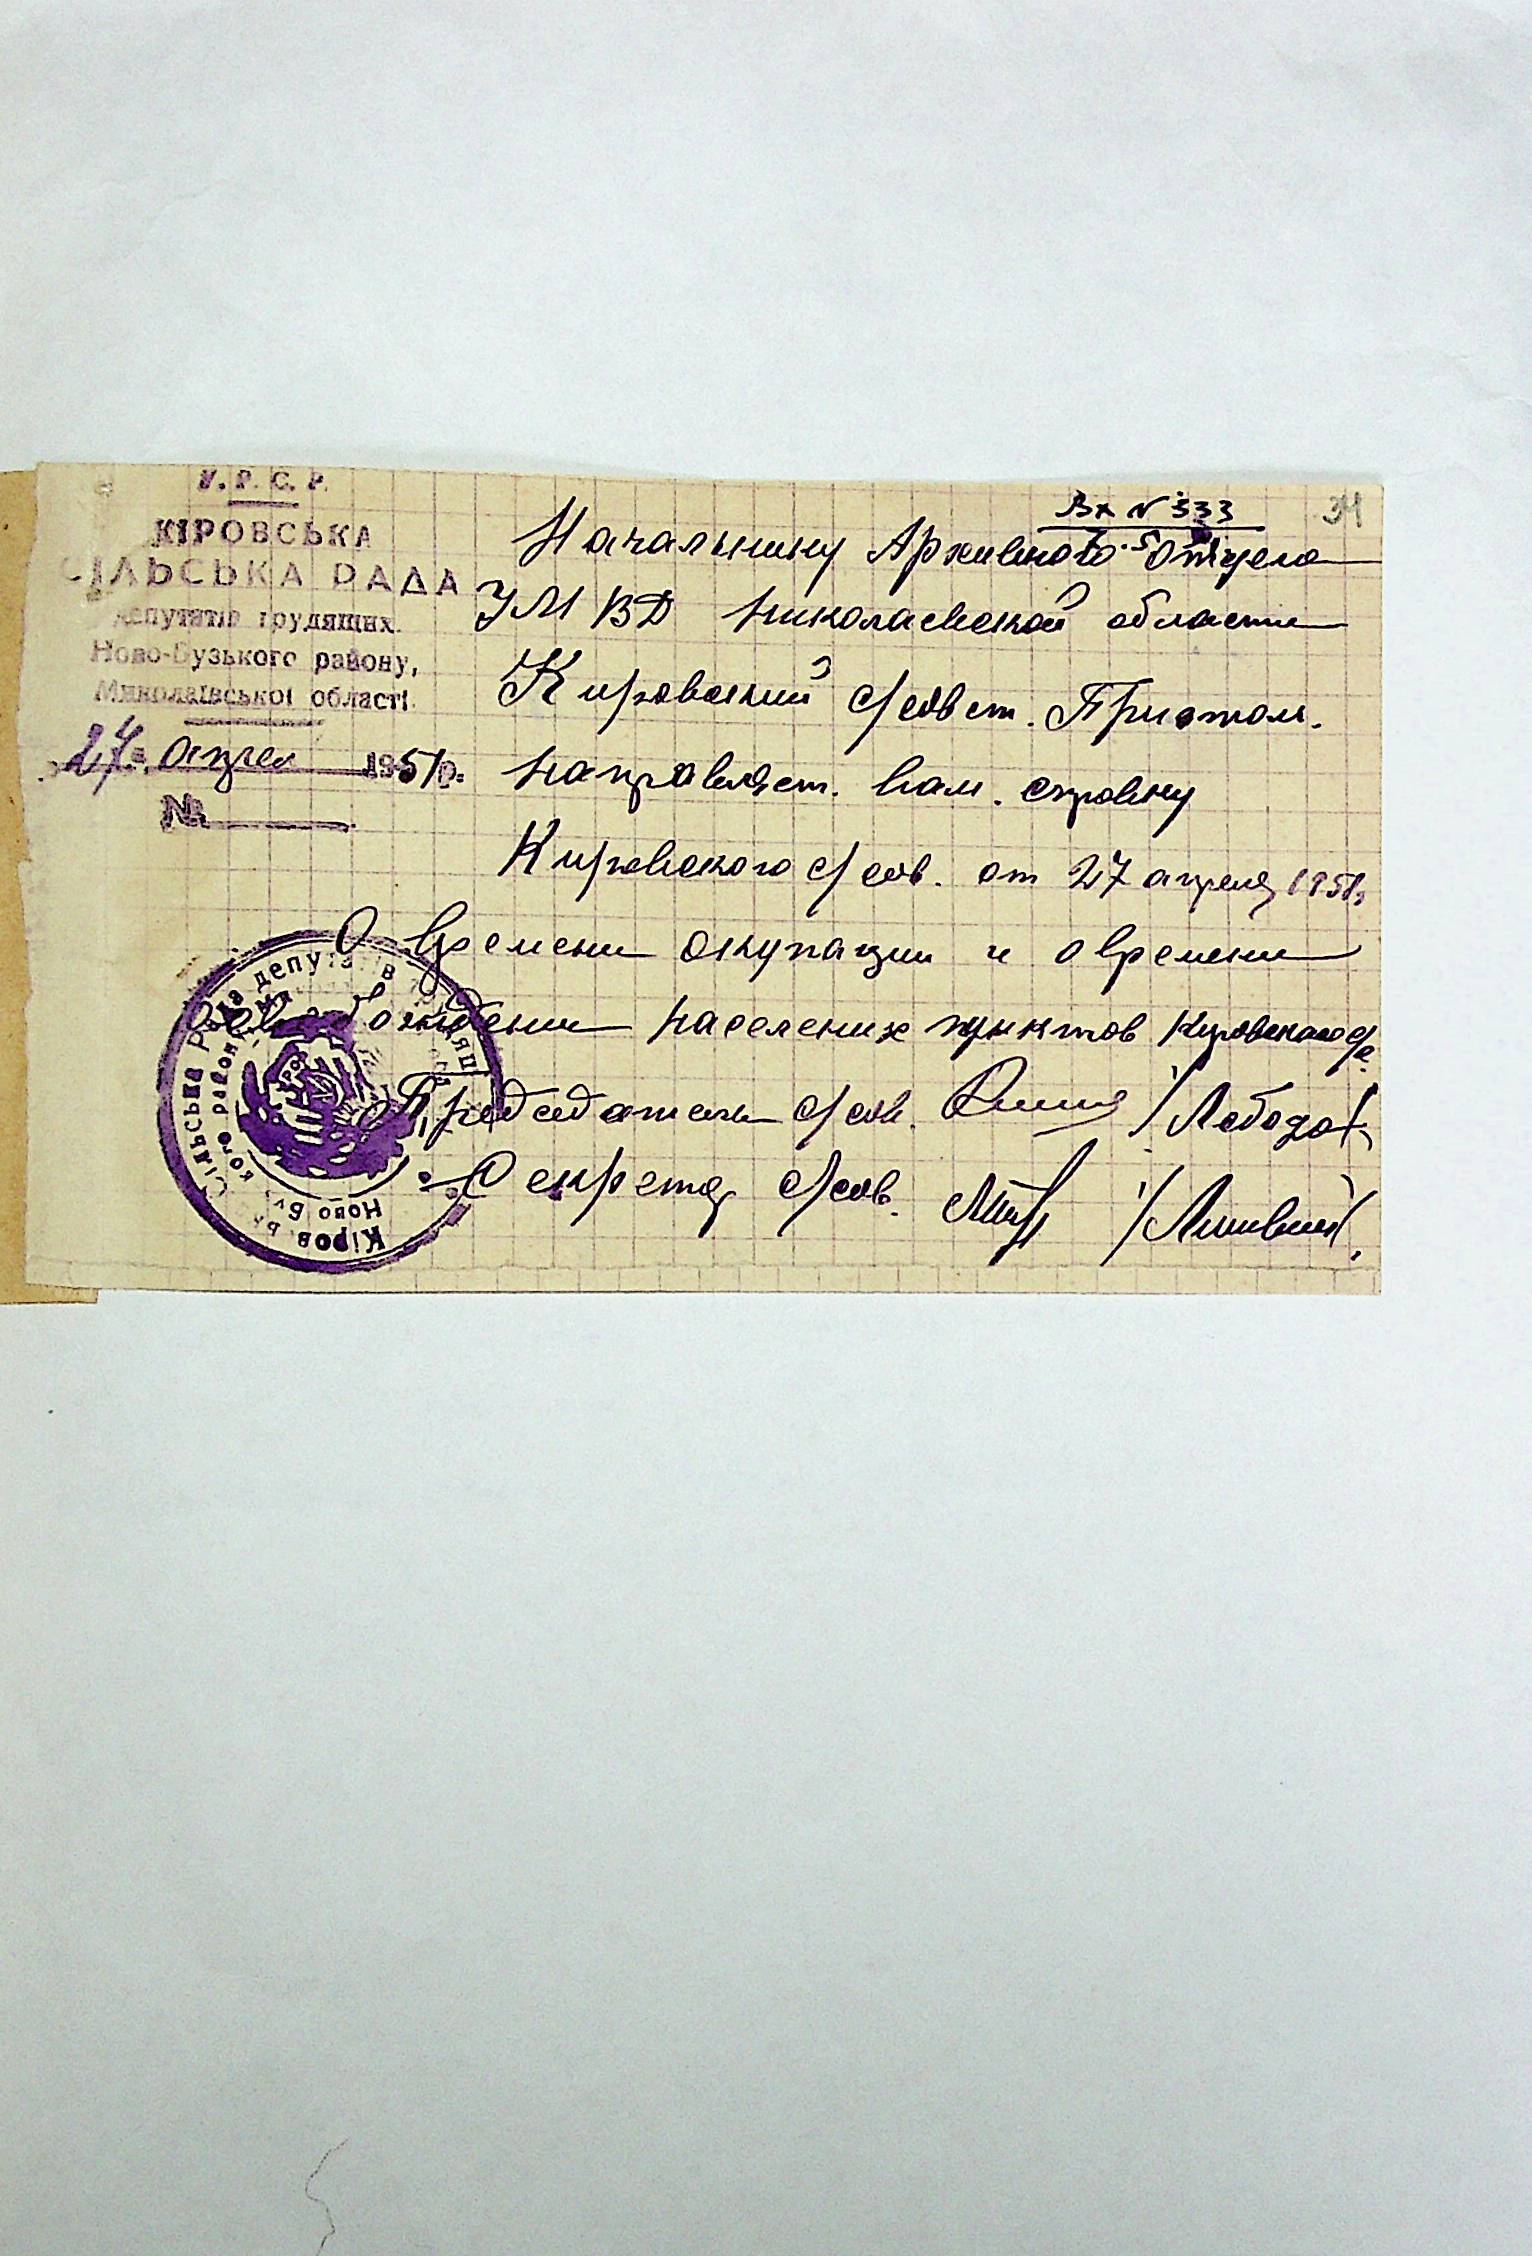 У. Р. С. Р.
КІРОВСЬКА
СІЛЬСЬКА РАДА
депутатів трудящих
Ново-Бузького району,
Миколаївської області
„27“ апрел 1951р.
№
Вх № 333
34
Начальнику Архивного отдела
УМВД Николаевской области
Кировский с/совет. При этом.
направляет. вам. справку
Кировского с/сов. от 27 апреля 1951г
О времени окупации и о времени
освобождении населених пунктов Кировского с/с.
Председатель с/сов. /Лебода/
Секретар с/сов.
Кіровська сільська рада депутатів трудящих
Ново Бузького району